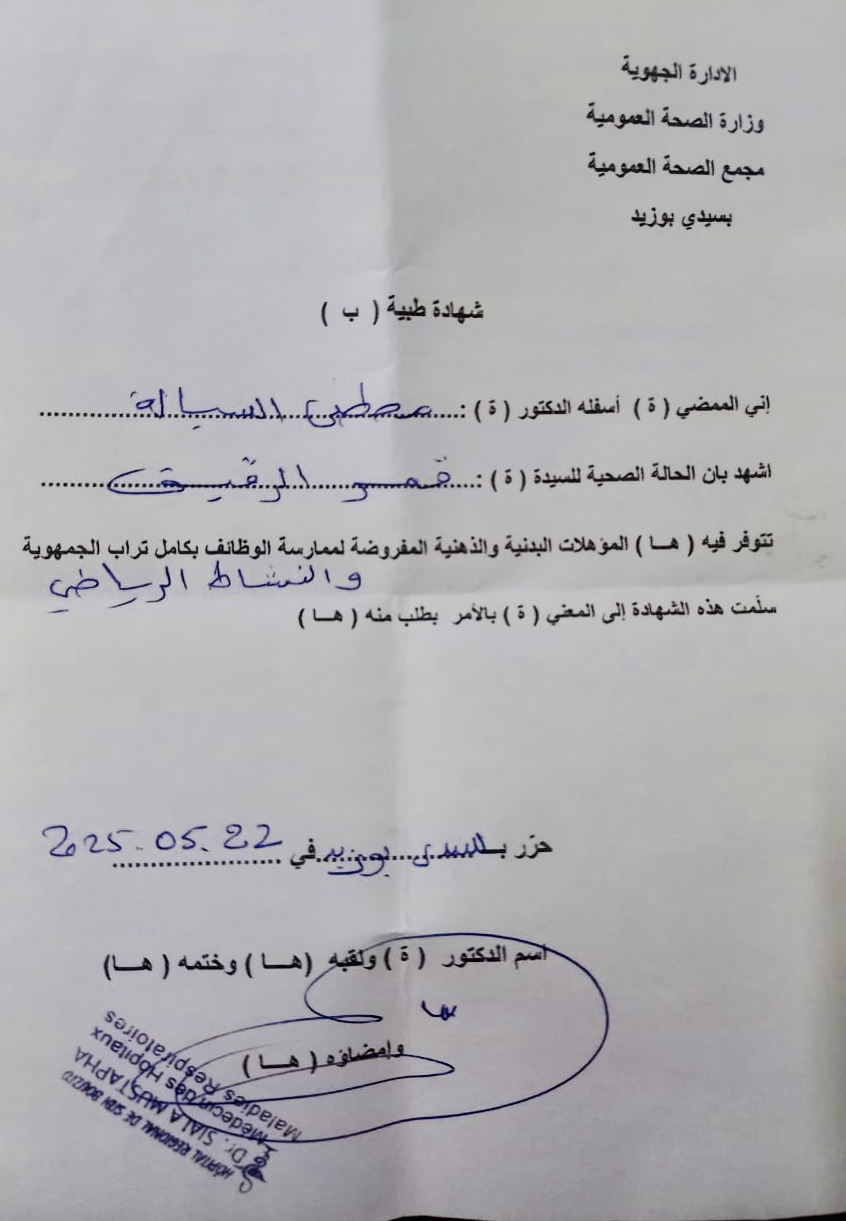 الادارة الجهوية
وزارة الصحة العمومية
مجمع الصحة العمومية
بسيدي بوزيد
شهادة طبية ( ب )
إني الممضي ( ة ) أسفله الدكتور ( ة ) : مصطفى السيالة
اشهد بان الحالة الصحية للسيدة ( ة ) : قمر الرقيق
تتوفر فيه ( هـا ) المؤهلات البدنية والذهنية المفروضة لممارسة الوظائف بكامل تراب الجمهورية
والنشاط الرياضي
سلّمت هذه الشهادة إلى المعني ( ة ) بالأمر بطلب منه ( هـا )
حرّر بـ سيدي بوزيد في 2025.05.22
اسم الدكتور ( ة ) ولقبه (هـا ) وختمه ( هـا)
وإمضاؤه ( هـا )
HÔPITAL REGIONAL DE SIDI BOUZID
Dr. SIALA MUSTAPHA
Médecin des Hôpitaux
Maladies Respiratoires